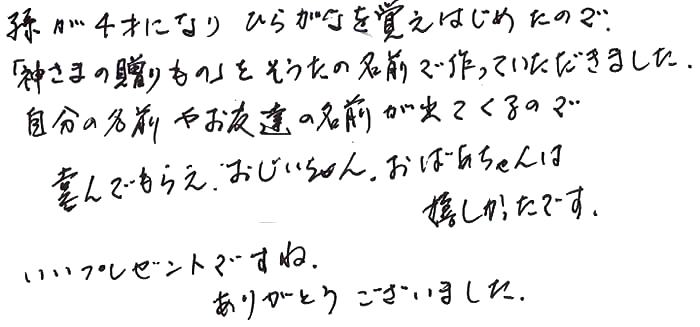 孫が4才になり ひらがなを覚えはじめたので、
「神さまの贈りもの」を そうたの名前で作っていただきました.
自分の名前やお友達の名前が出てくるので
喜んでもらえ、おじいちゃん、おばあちゃんは
嬉しかったです.
いいプレゼントですね.
ありがとうございました.